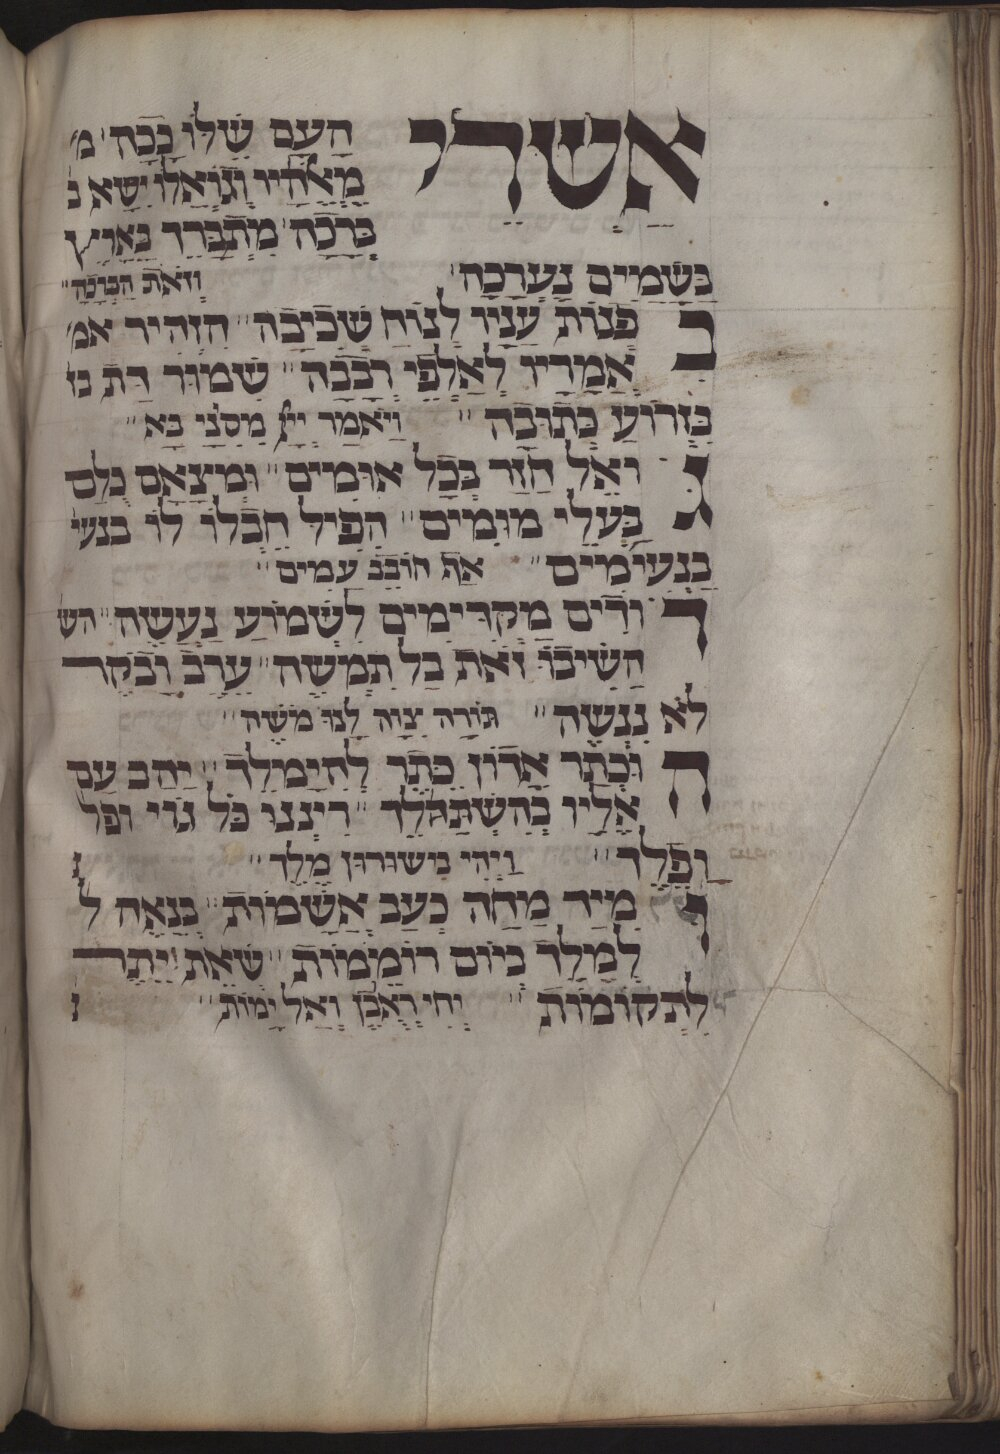 אַשְׁרֵי הָעָם שֶׁלּוֹ כָּכָה מ
מֵאֶחָיו וְגוֹאֲלוֹ יִשָּׂא ב
בְּרָכָה מִתְבָּרֵךְ בָּאָרֶץ
בַּשָּׁמַיִם נַעֲרָכָה וְזֹאת הַבְּרָכָה
ב פְּנוֹת עָנָיו לָנוּחַ שָׁבִיבָה הִזְהִיר אמ
אֲמָרָיו לְאַלְפֵי רְבָבָה שִׁמּוּר דַּת בז
בִּזְרוֹעַ כְּתוּבָה וַיֹּאמַר יְיָ מִסִּינַי בָּא
ג וְאֵל חָזַר בְּכָל אוּמִים וּמְצָאָם כֻּלָּם
בַּעֲלֵי מוּמִים הִפִּיל חֶבְלוֹ לוֹ בנעי
בַּנְּעִימִים אַף חוֹבֵב עַמִּים
ד וֹרִים מַקְדִּימִים לִשְׁמוֹעַ נַעֲשֶׂה הש
הֵשִׁיבוּ זֹאת בַּל תְּמַשֶּׁה עֶרֶב וָבֹקֶר
לֹא נִנְשֶׁה תּוֹרָה צִוָּה לָנוּ מֹשֶׁה
ה וּכְתַר אָרוֹן כֶּתֶר לְהִימָלֵךְ יַהַב עַם
אֵלָיו בְּהִשְׁתַּהֲלֵךְ רִינְנוּ כָּל גּוֹי ופל
וָפֶלֶךְ וַיְהִי בִישׁוּרוּן מֶלֶךְ
ו מֵיר מָחָה כָעָב אֲשָׁמוֹת בְּנָאָה ל
לַמֶּלֶךְ כְּיוֹם רוֹמֵמוֹת שְׂאֵת יֶתֶר
לִתְקוֹמוֹת יְחִי רְאוּבֵן וְאַל יָמוֹת